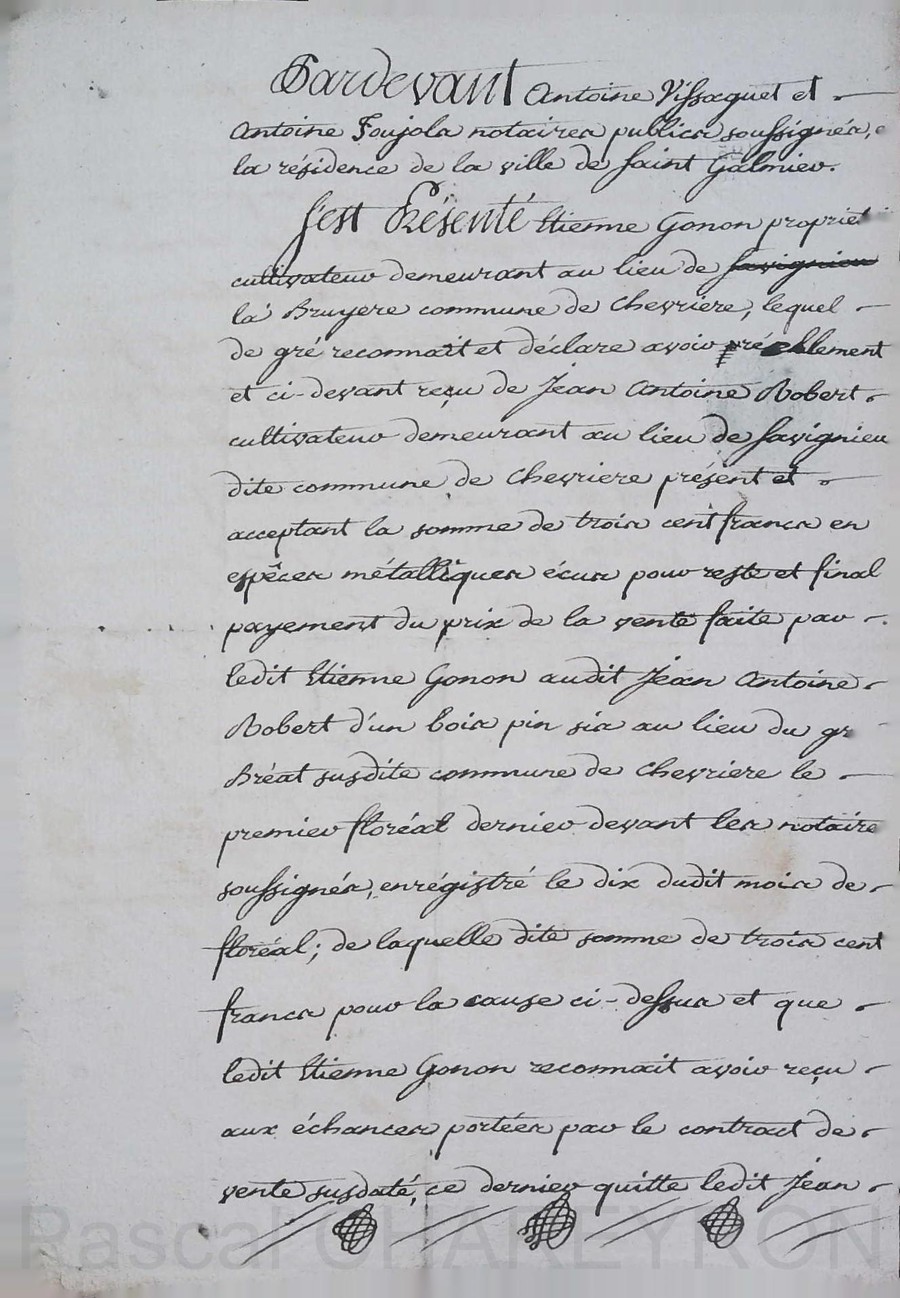 Pardevant Antoine Vissaguet et
Antoine Foujols notaires publics soussignés,
la résidence de la ville de Saint Galmier.
S'est Présenté Etienne Gonon propriét
cultivateur demeurant au lieu de Savignieu
la Bruyere commune de Chevriere, lequel
de gré reconnait et déclare avoir réellement
et ci-devant reçu de Jean Antoine Robert
cultivateur demeurant au lieu de Savignieu
dite commune de Chevriere présent et
acceptant la somme de trois cent francs en
espêces métalliques écus pour reste et final
payement du prix de la vente faite par
ledit Etienne Gonon audit Jean Antoine
Robert d'un bois pin sis au lieu du
Bréat susdite commune de Chevriere le
premier floréal dernier devant les notaire
soussignés, enrégistré le dix dudit mois de
floréal; de laquelle dite somme de trois cent
francs pour la cause ci-dessus et que
ledit Etienne Gonon reconnait avoir reçu
aux échances portées par le contract de
vente susdaté, ce dernier quitte ledit Jean
Pascal CHAREYRON